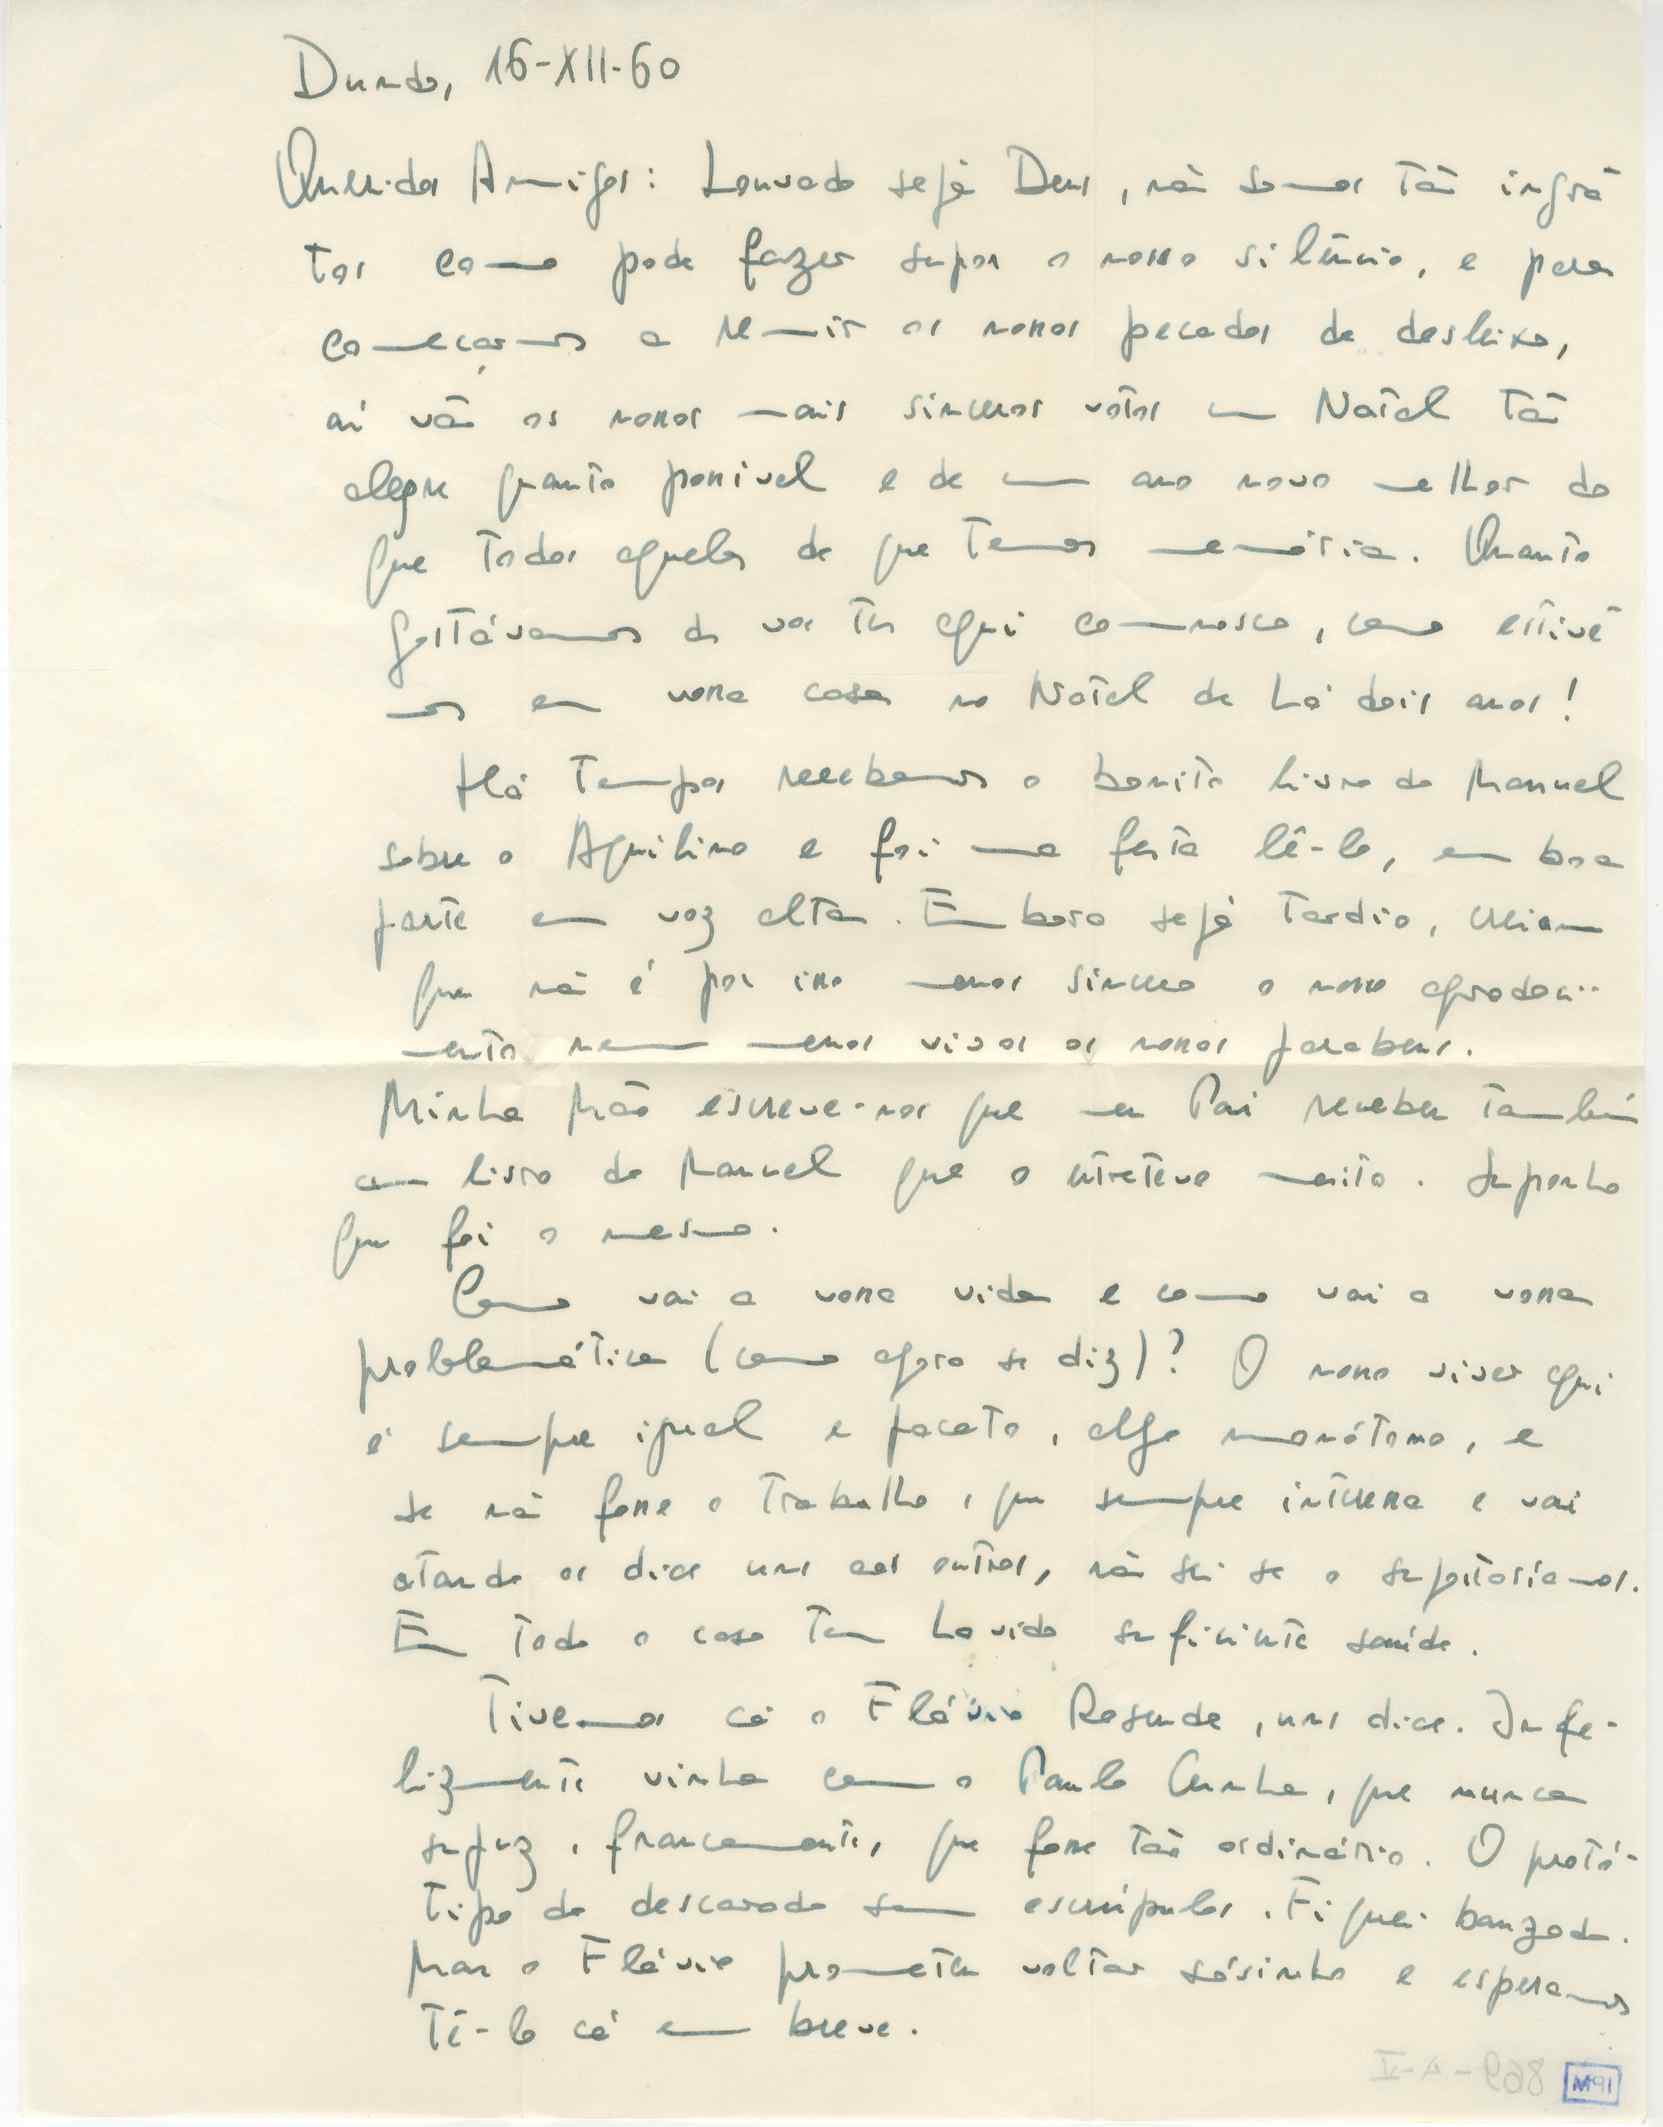 Dundo, 16-XII-60
Queridos Amigos: Louvado seja Deus, não somos tão ingra
tos como pode fazer supor o nosso silêncio, e para
começarmos a remir os nossos pecados de desleixo,
aí vão os nossos mais sinceros votos um Natal tão
alegre quanto possível e de um ano novo melhor do
que todos aqueles de que temos memória. Quanto
gostávamos de vos ter aqui connosco, como estivé
mos em vossa casa no Natal de há dois anos!
Há tempos recebemos o bonito livro do Manuel
sobre o Aquilino e foi uma festa lê-lo, em boa
parte em voz alta. Embora seja tardio, creiam
que não é por isso menos sincero o nosso agradeci-
mento nem menos vivos os nossos parabens.
Minha Mãe escreve-nos que meu Pai recebeu também
um livro do Manuel que o entreteve muito. Suponho
que foi o mesmo.
Como vai a vossa vida e como vai a vossa
problemática (como agora se diz)? O nosso viver aqui
é sempre igual e pacato, algo monótono, e
se não fosse o trabalho, que sempre interessa e vai
atando os dias uns aos outros, não sei se o suportaríamos.
Em todo o caso tem havido suficiente saúde.
Tivemos cá o Flávio Resende, uns dias. Infe-
lizmente vinha com o Paulo Cunha, que nunca
supuz, francamente, que fosse tão ordinário. O protó-
tipo do descarado sem escrúpulos. Fiquei banzado.
Mas o Flávio prometeu voltar sòsinho e esperamos
tê-lo cá em breve.
869-A-II
M91